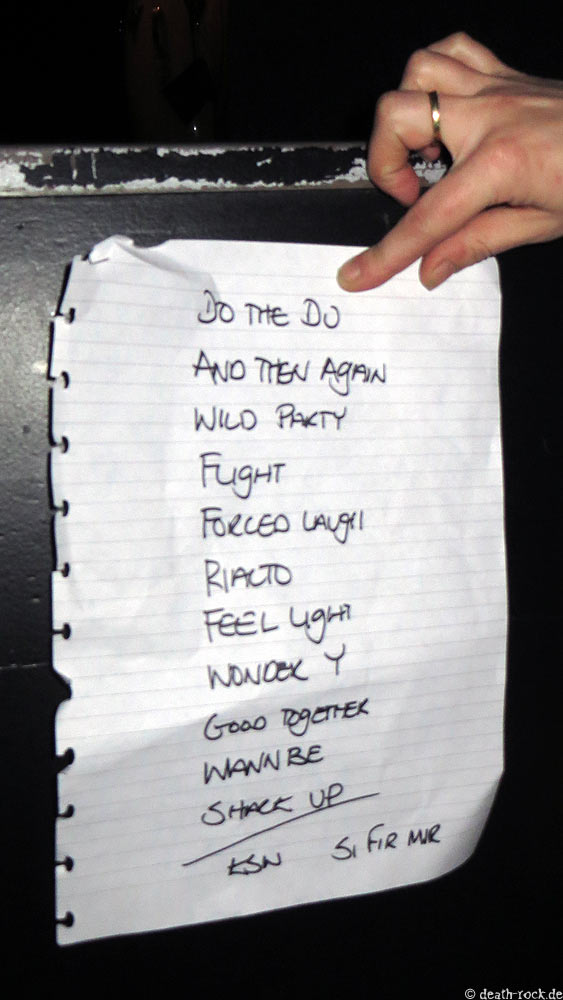 DO THE DU
AND THEN AGAIN
WILD PARTY
FLIGHT
FORCED LAUGH
RIALTO
FEEL LIGHT
WONDER Y
GOOD TOGETHER
WANNBE
SHACK UP
KSN SI FIR MIR
© death-rock.de